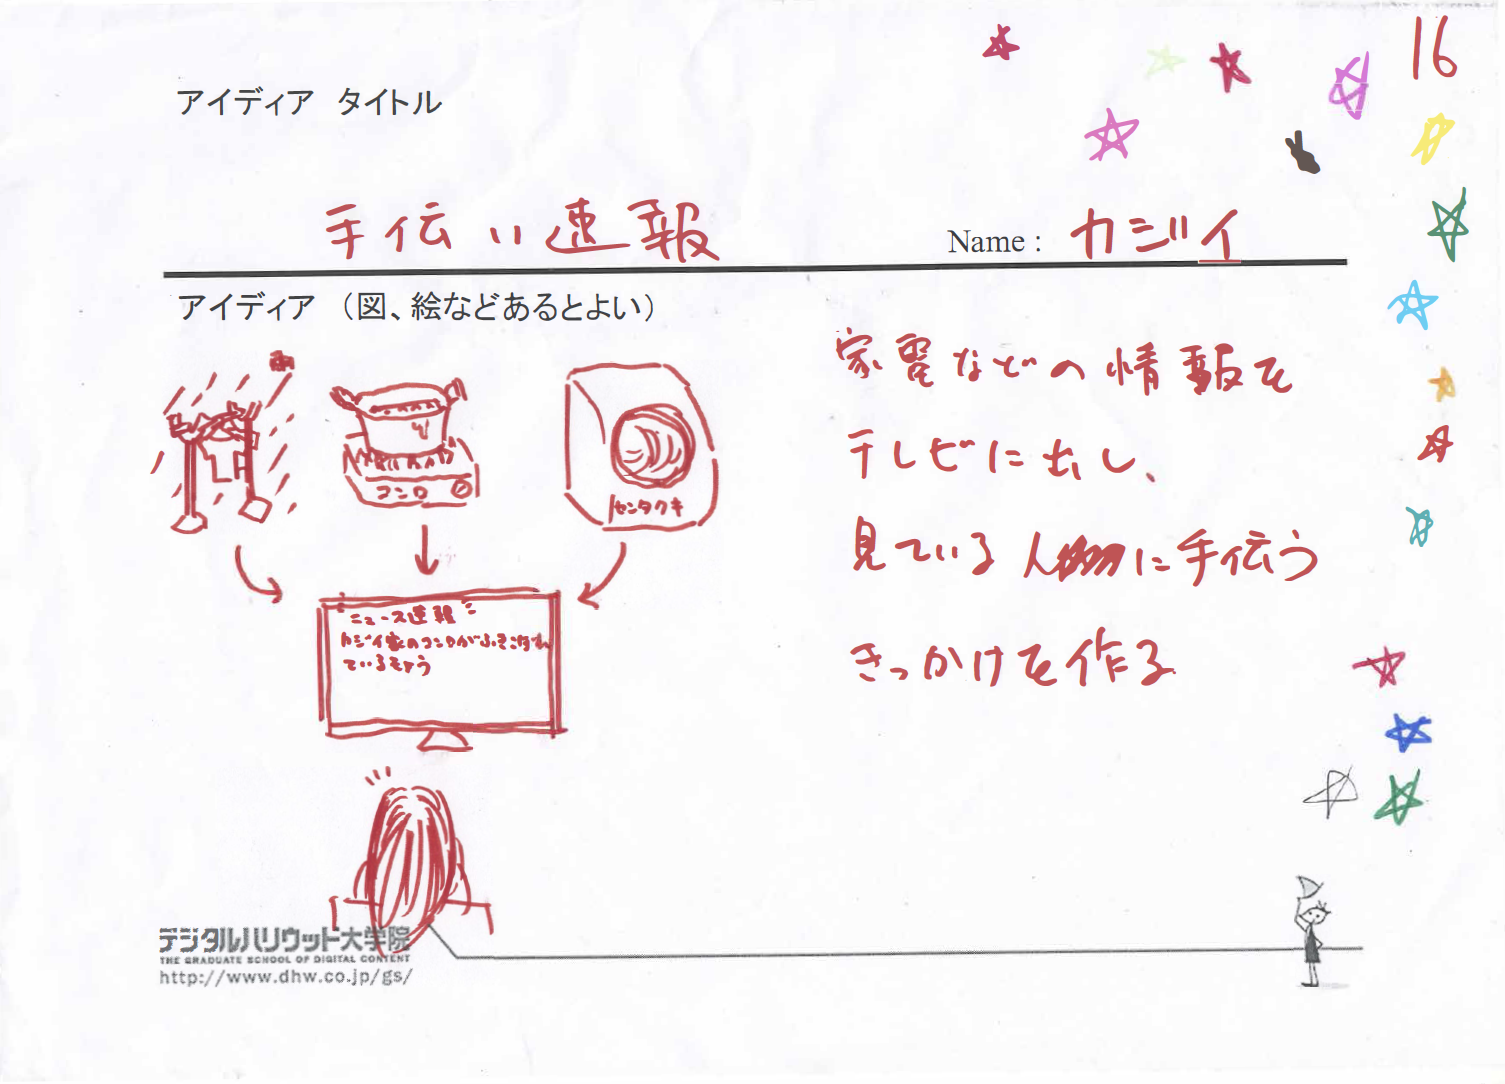 16
アイディア　タイトル
手伝い速報
Name : カジイ
アイディア　（図、絵などあるとよい）
雨
コンロ
センタクキ
ニュース速報
カジイ家のコンロがふきこぼれ
ているそうう
家電などの情報を
テレビに出し、
見ている人に手伝う
きっかけを作る
デジタルハリウッド大学院
THE GRADUATE SCHOOL OF DIGITAL CONTENT
http://www.dhw.co.jp/gs/